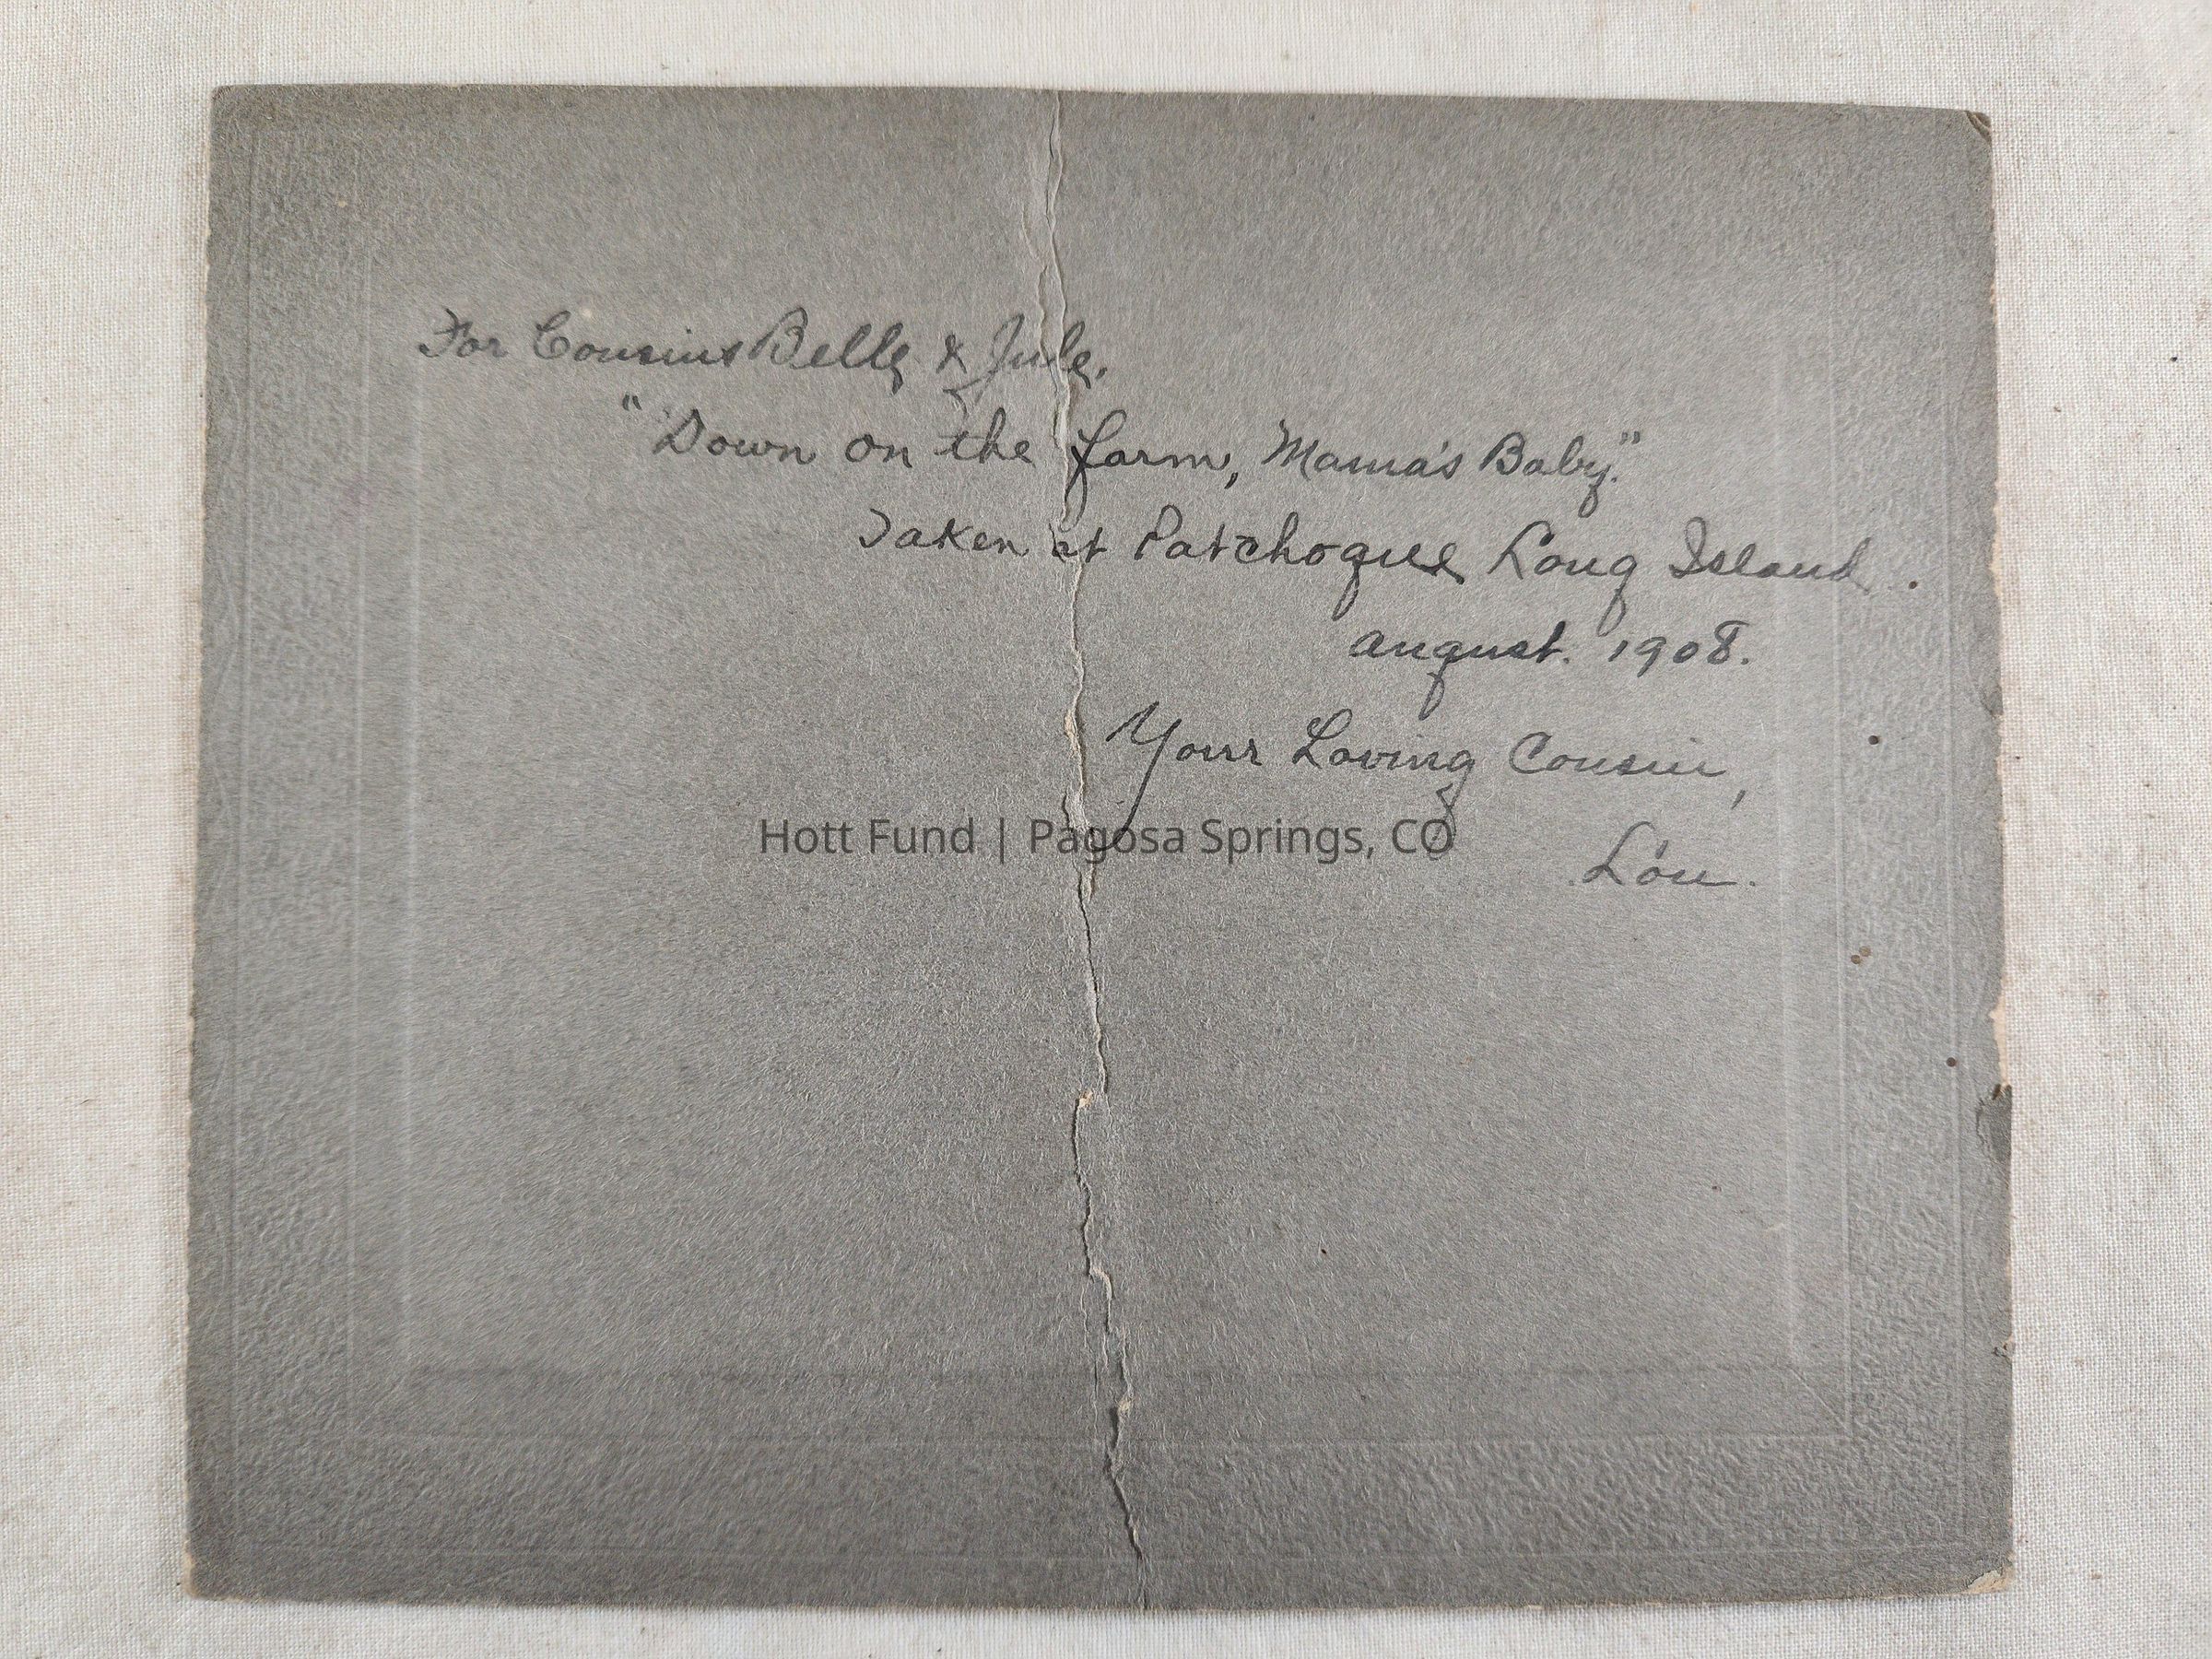 For Cousins Belle & Jule.
"Down on the farm, Mama's Baby."
Taken at Patchogue Long Island.
august. 1908.
Your Loving Cousin,
Hott Fund | Pagosa Springs, CO
Lou.